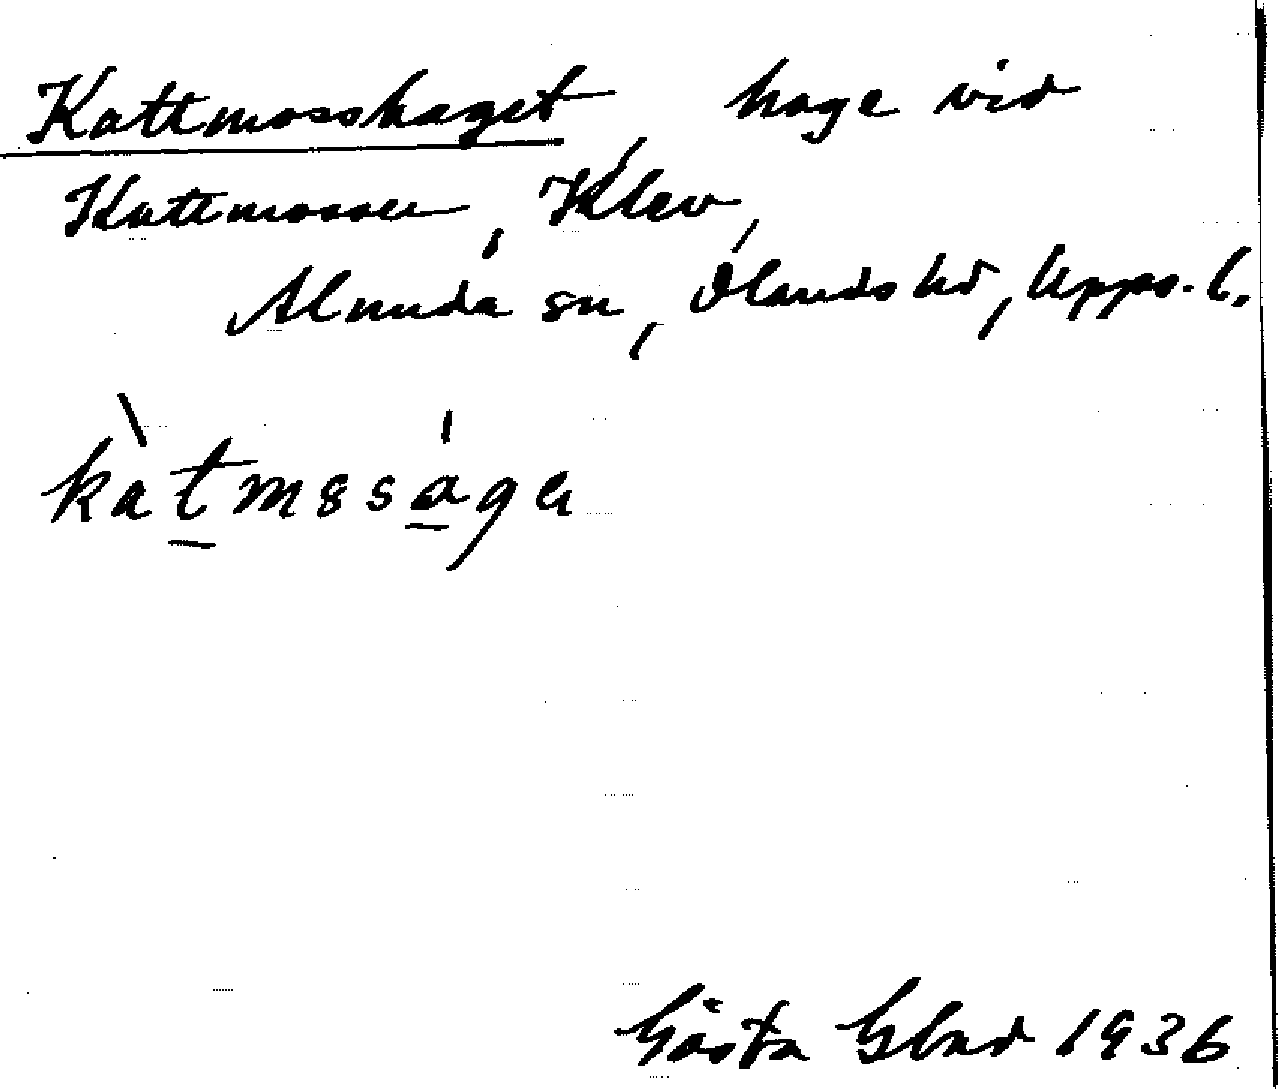 Kattmosshaget, hage vid
Kattmossen, Klev,
Alunda sn, Olands hd, Upps. l.
kàtmssága
Gösta Blad 1936